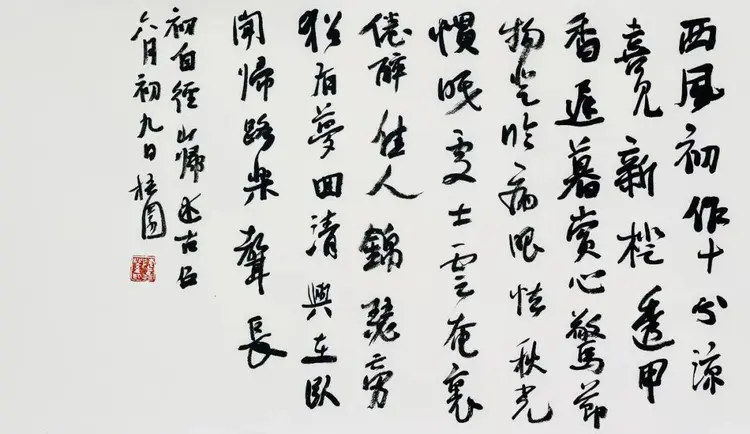 西風初作十分涼
喜見新橙透甲
香遲暮賞心驚節
物登临病眼怯秋光
慣眠處士雲庵裏
倦醉佳人錦瑟旁
猶有夢回清興在臥
聞歸路樂聲長
初自徑山歸述古召
六月初九日